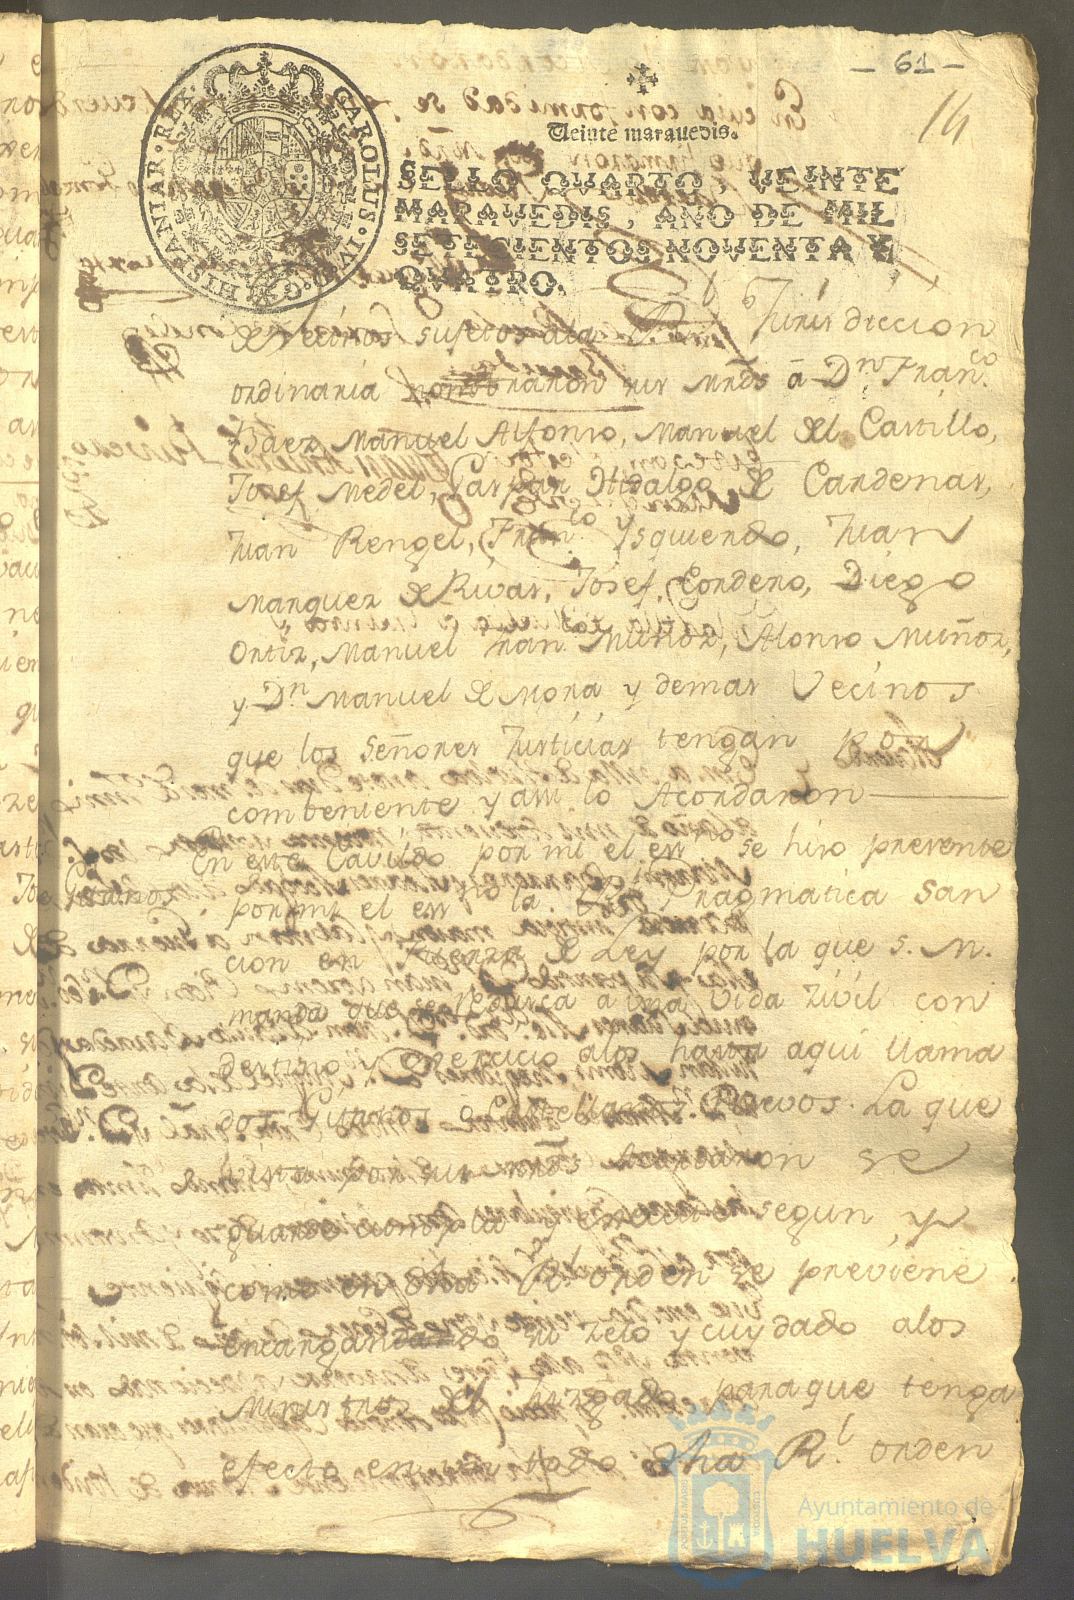 - 61 -
14
CAROLUS · IV · D · G · HISPANIAR · REX ·
Veinte maravedis.
SELLO QVARTO, VEINTE
MARAVEDIS, AÑO DE MIL
SETECIENTOS NOVENTA Y
QVATRO.
de vecinos sujetos ala Jurisdiccion
ordinaria nombraron sus mrds â Dn. Franco.
Baez, Manuel Alfonso, Manuel del Castillo,
Josef Medel, Gaspar Hidalgo de Cardenas,
Juan Rengel, Franco. Ysquierdo, Juan
Marquez de Rivas, Josef Cordero, Diego
Ortiz, Manuel Fran. Muñoz, Alonso Muñoz,
y Dn Manuel de Mora y demas Vecinos
que los Señores Justicias tengan por
combeniente y assi lo Acordaron
Gitanos
En este Cavildo por mi el essno se hiso presente
por mi el essno la Rl. Pragmatica San
cion en fuerza de Ley por la que S. M.
manda que se reduzca a una Vida Zivil con
destino y exercicio alos hasta aqui llama
dos Gitanos o Castellanos Nuevos. La que
vista por sus mrds Acordaron se
guarde cumpla y execute segun y
como en dha Rl. orden se previene
encargando su zelo y cuydado alos
Ministros del Juzgado para que tenga
efecto en un todo dha Rl. orden
Ayuntamiento de
HUELVA